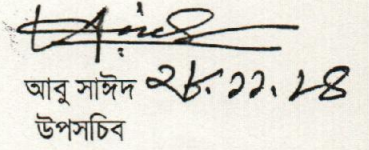 আবু সাঈদ ২৮.১১.২৪
উপসচিব